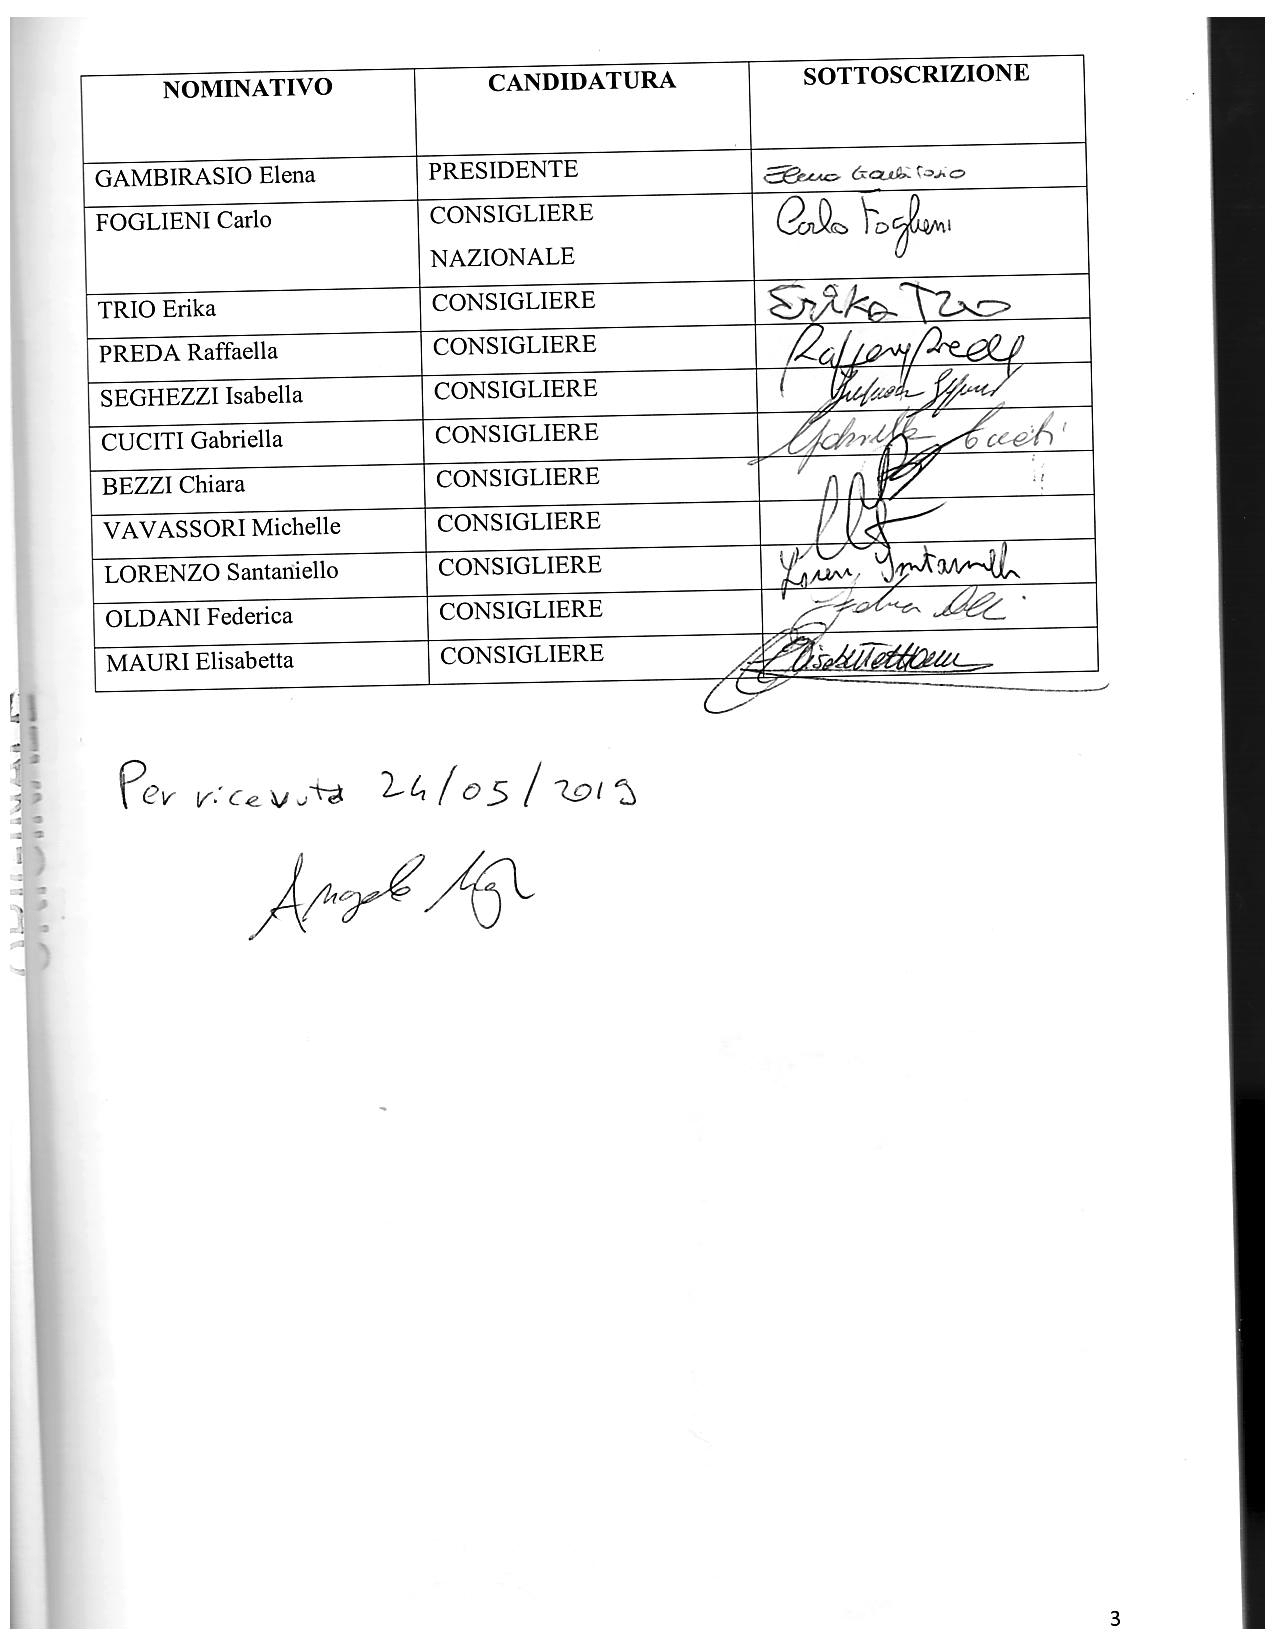 NOMINATIVO CANDIDATURA SOTTOSCRIZIONE
GAMBIRASIO Elena PRESIDENTE Elena Gambirasio
FOGLIENI Carlo CONSIGLIERE Carlo Foglieni
NAZIONALE
TRIO Erika CONSIGLIERE Erika Trio
PREDA Raffaella CONSIGLIERE
SEGHEZZI Isabella CONSIGLIERE
CUCITI Gabriella CONSIGLIERE Gabriella Cuciti
BEZZI Chiara CONSIGLIERE
VAVASSORI Michelle CONSIGLIERE
LORENZO Santaniello CONSIGLIERE
OLDANI Federica CONSIGLIERE
MAURI Elisabetta CONSIGLIERE
Per ricevuta 24/05/2019
Angelo
3